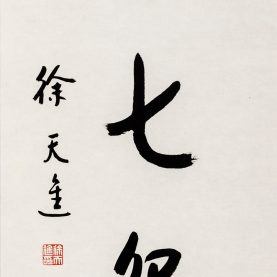 七
徐天進